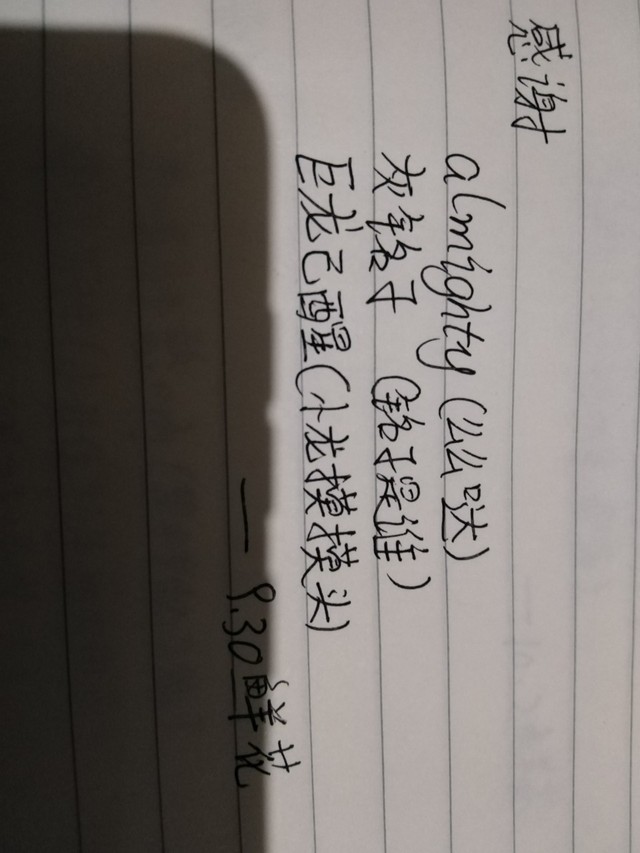 感谢
almighty (么么哒)
灰铭子 (铭子是谁)
巨龙已醒(小龙摸摸头)
— 9.30鲜花